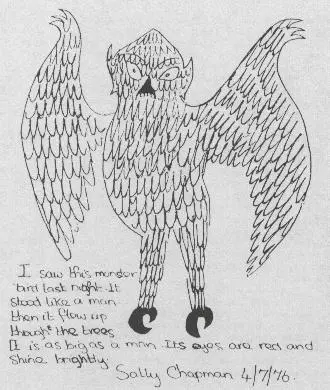 I saw this monster
bird last night. It
stood like a man
then it flew up
through the trees
It is as big as a man. Its eyes are red and
shine brightly.
Sally Chapman 4/7/76.